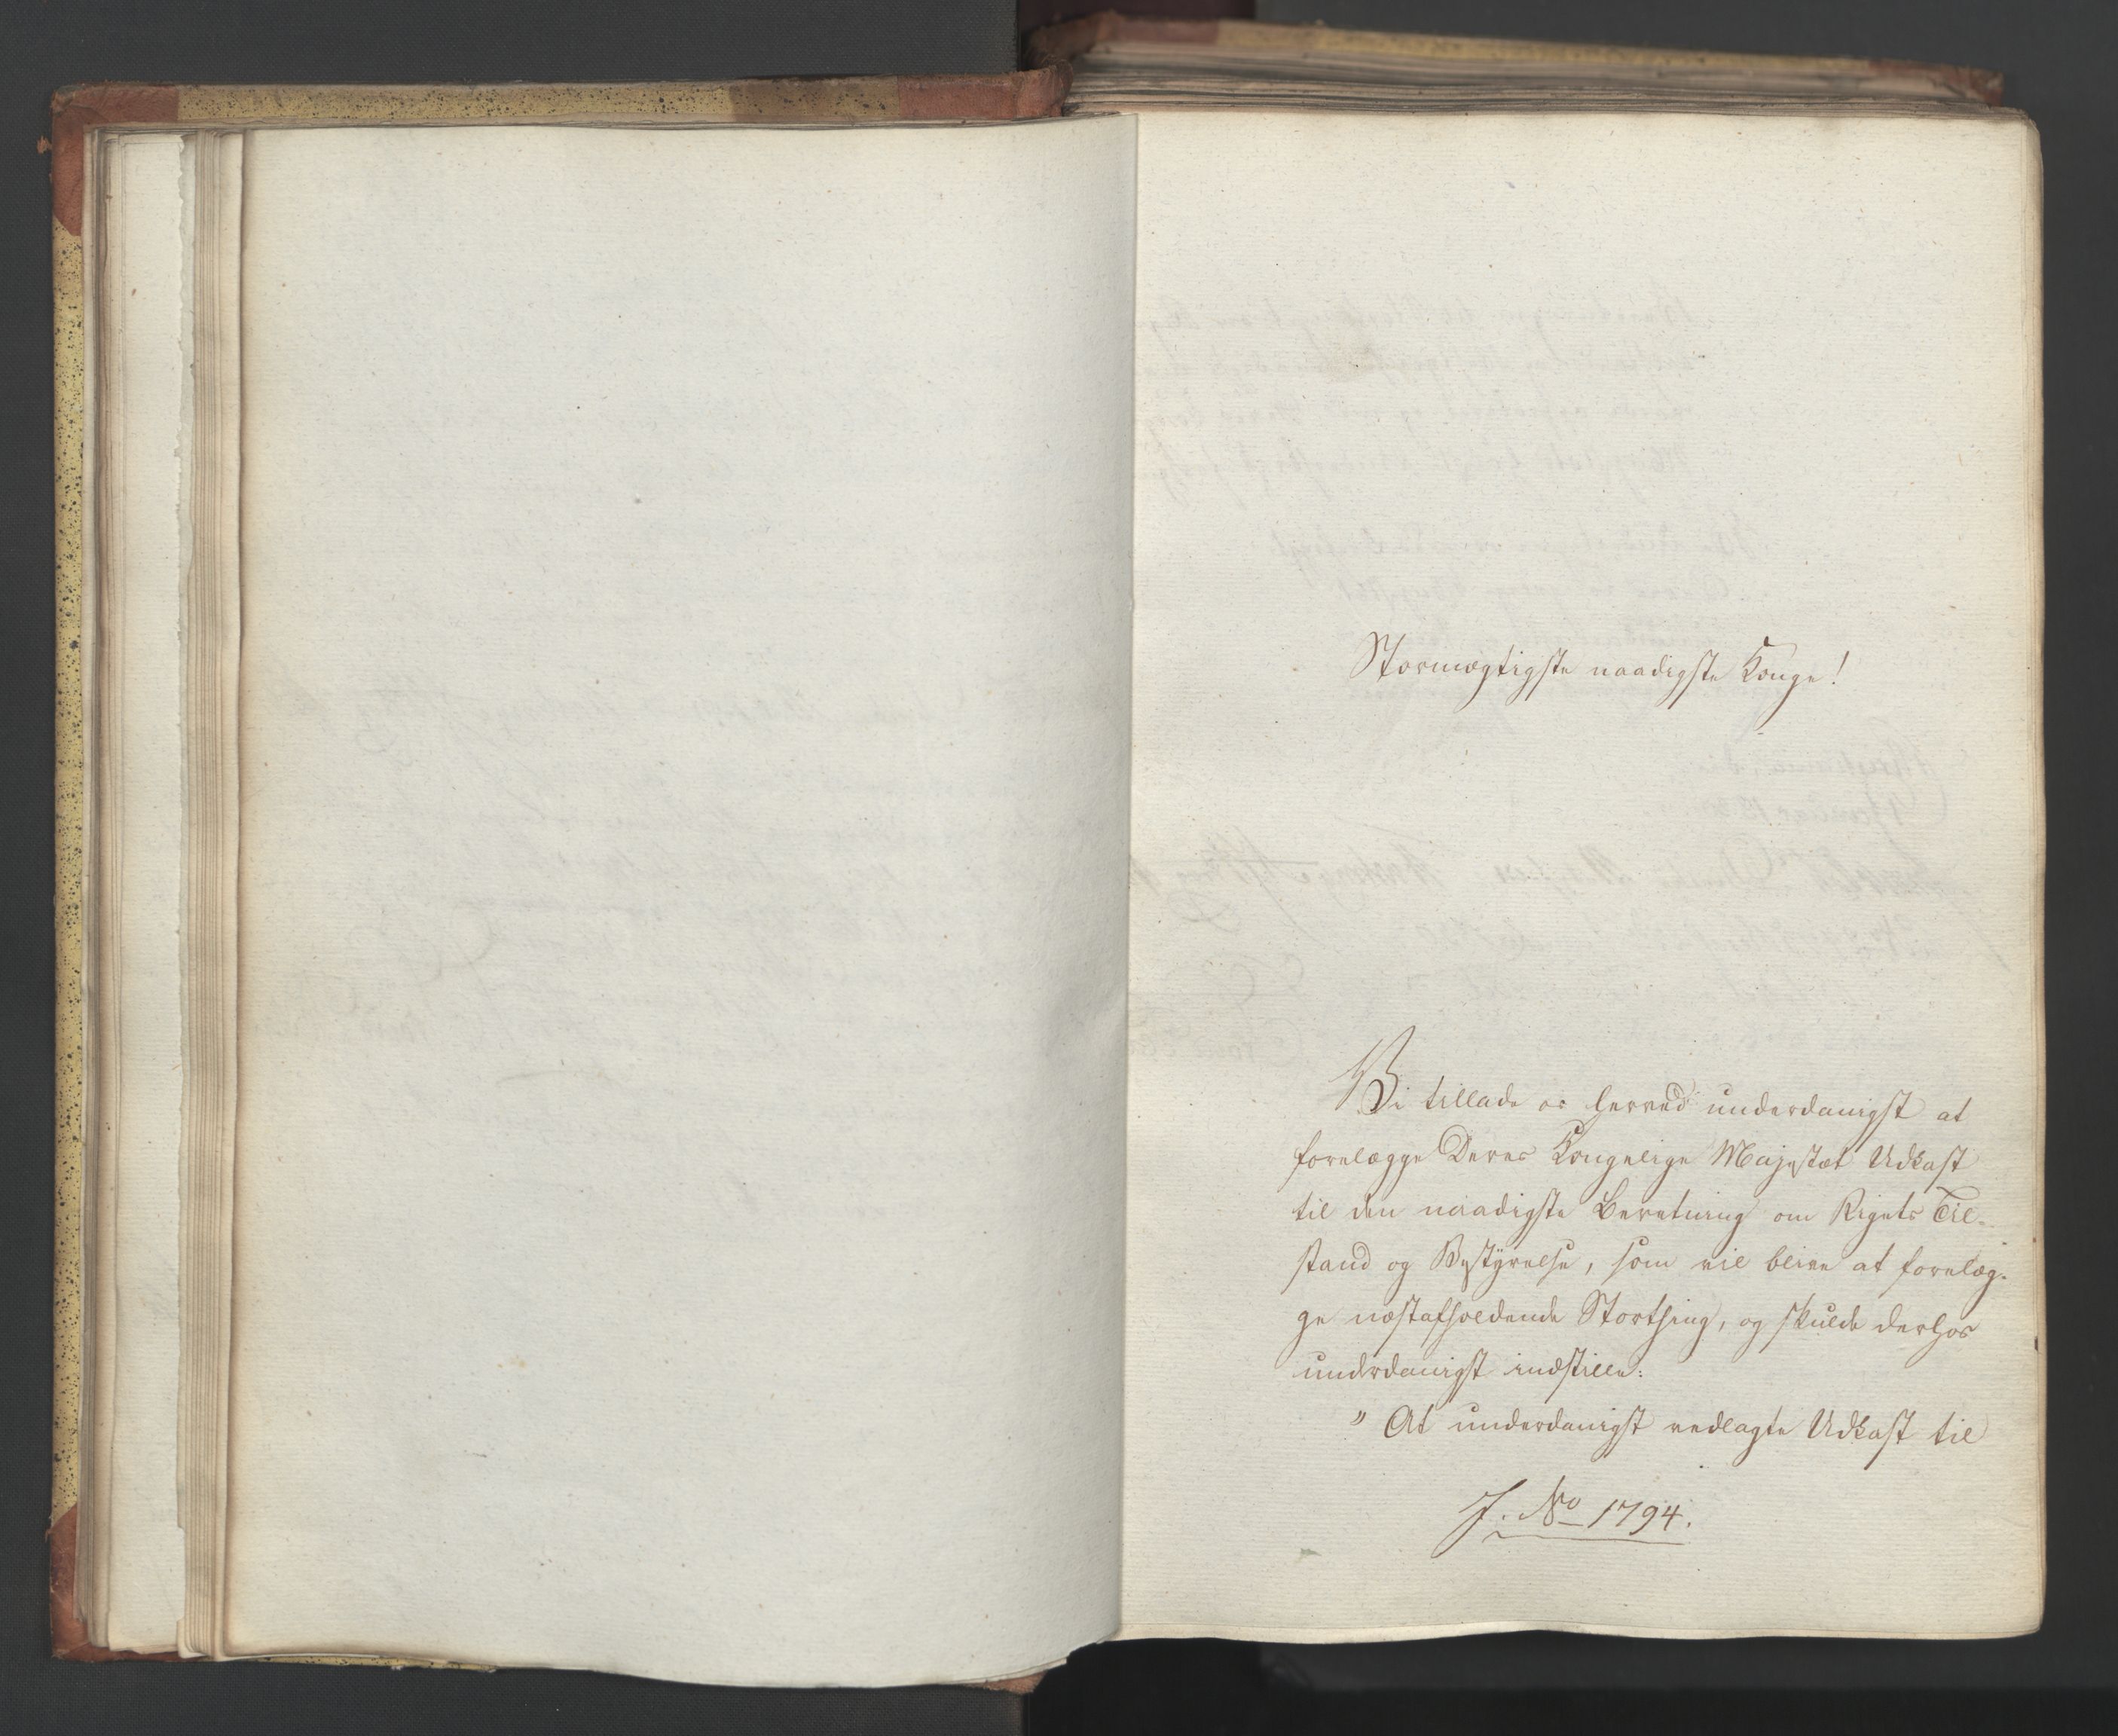 Stormægtigste naadigste Konge!
Vi tillade os herved underdanigst at
forelægge Deres Kongelige Majestæt Udkast
til den naadigste Beretning om Rigets Til-
stand og Bestÿrelse, som vil blive at forelæg-
ge næstafholdende Storthing, og skulde derhos
underdanigst indstille:
" At underdanigst vedlagte Udkast til
J. No 1794.